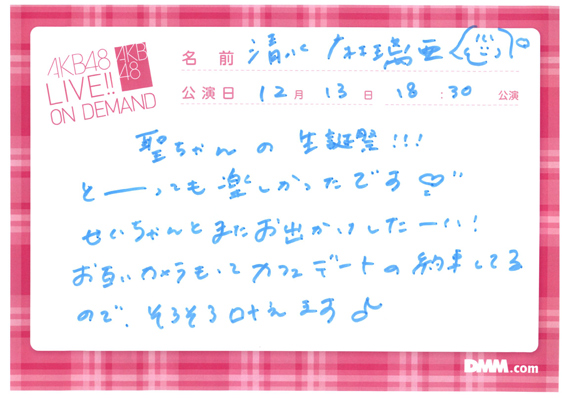 AKB48
LIVE!!
ON DEMAND
AKB
48
名前 清水 麻璃亜
公演日 12月 13日 18:30 公演
聖ちゃんの 生誕祭!!!
とーっても楽しかったです♡
せいちゃんとまたお出かけしたーい!
お互いカメラもってカフェデートの約束してる
ので、そろそろ叶えます♪
DMM.com